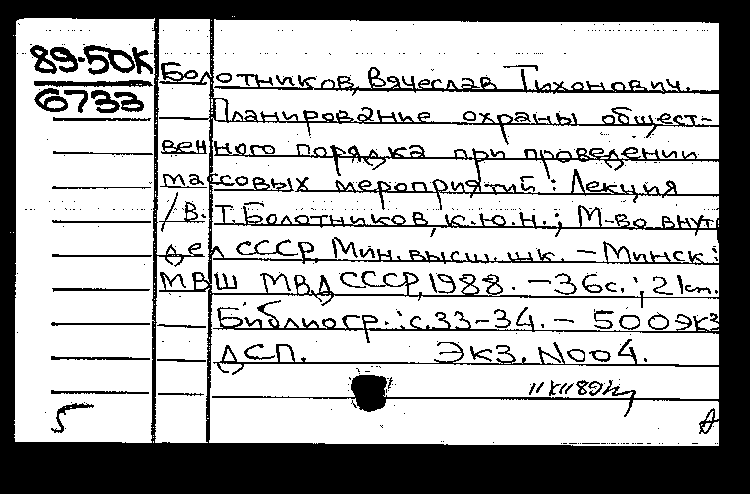 89-50К
6733
Болотников, Вячеслав Тихонович.
Планирование охраны общест-
венного порядка при проведении
массовых мероприятий: Лекция
/В. Т. Болотников, к.ю.н.; М-во внут
дел СССР, Мин. высш. шк. - Минск:
МВШ МВД СССР, 1988. - 36с.; 21см.
Библиогр.: с.33-34. - 500экз
ДСП. Экз. №004.
5